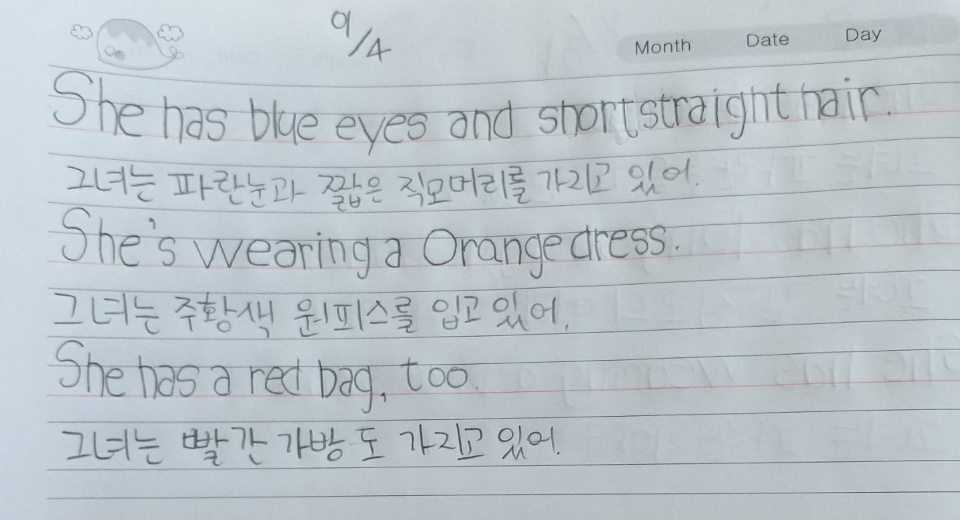 9/4
Month Date Day
She has blue eyes and short straight hair.
그녀는 파란눈과 짧은 직모머리를 가지고 있어.
She's wearing a Orange dress.
그녀는 주황색 원피스를 입고 있어.
She has a red bag, too.
그녀는 빨간 가방도 가지고 있어.